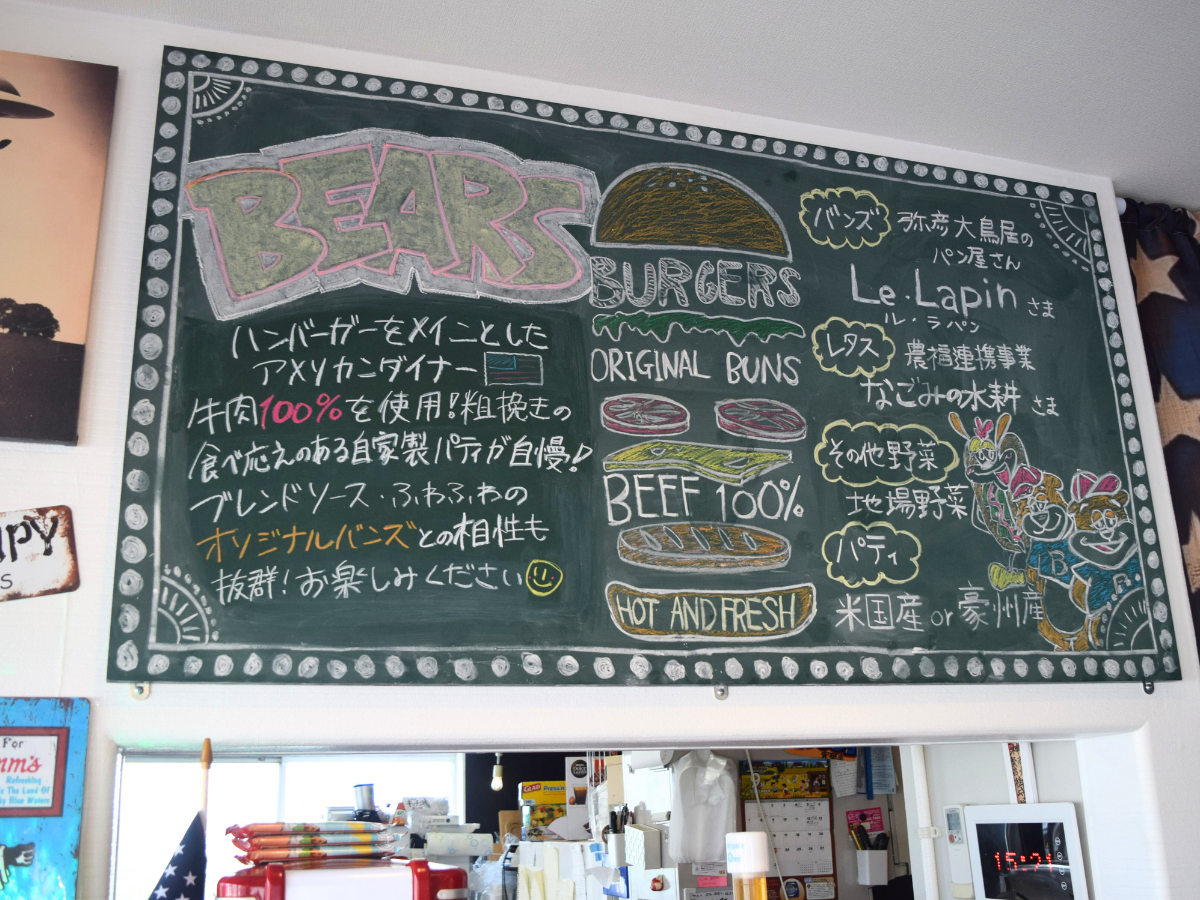 BEARS
ハンバーガーをメインとした
アメリカンダイナー
牛肉100%を使用!粗挽きの
食べ応えのある自家製パティが自慢!
ブレンドソース・ふわふわの
オリジナルバンズとの相性も
抜群!お楽しみください
BURGERS
ORIGINAL BUNS
BEEF 100%
HOT AND FRESH
バンズ 弥彦大鳥居の
パン屋さん
Le・Lapin さま
ル・ラパン
レタス 農福連携事業
なごみの水耕 さま
その他野菜
地場野菜
パティ
米国産 or 豪州産
B
PY
S
For
mm's
Refreshing
The Land Of
Blue Waters
GLAD
15:21